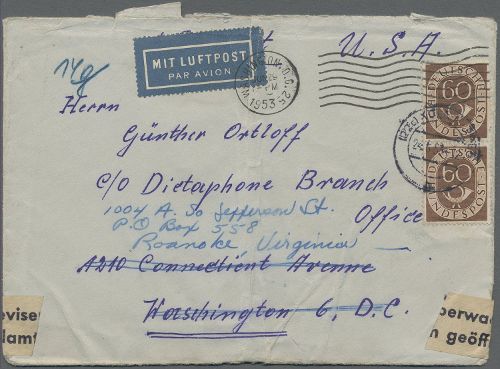 U.S.A.
14g
MIT LUFTPOST
PAR AVION
WASHINGTON, D.C. 25
1953
DEUTSCHE
60
BUNDESPOST
DEUTSCHE
60
BUNDESPOST
Herrn
Günther Ortloff
c/o Dictaphone Branch
Office
1004 A. So Jefferson St.
P.O Box 558
Roanoke, Virginia
4210 Connectient Avenue
Waschington 6, D.C.
evisen
lamt
berwac
n geöff